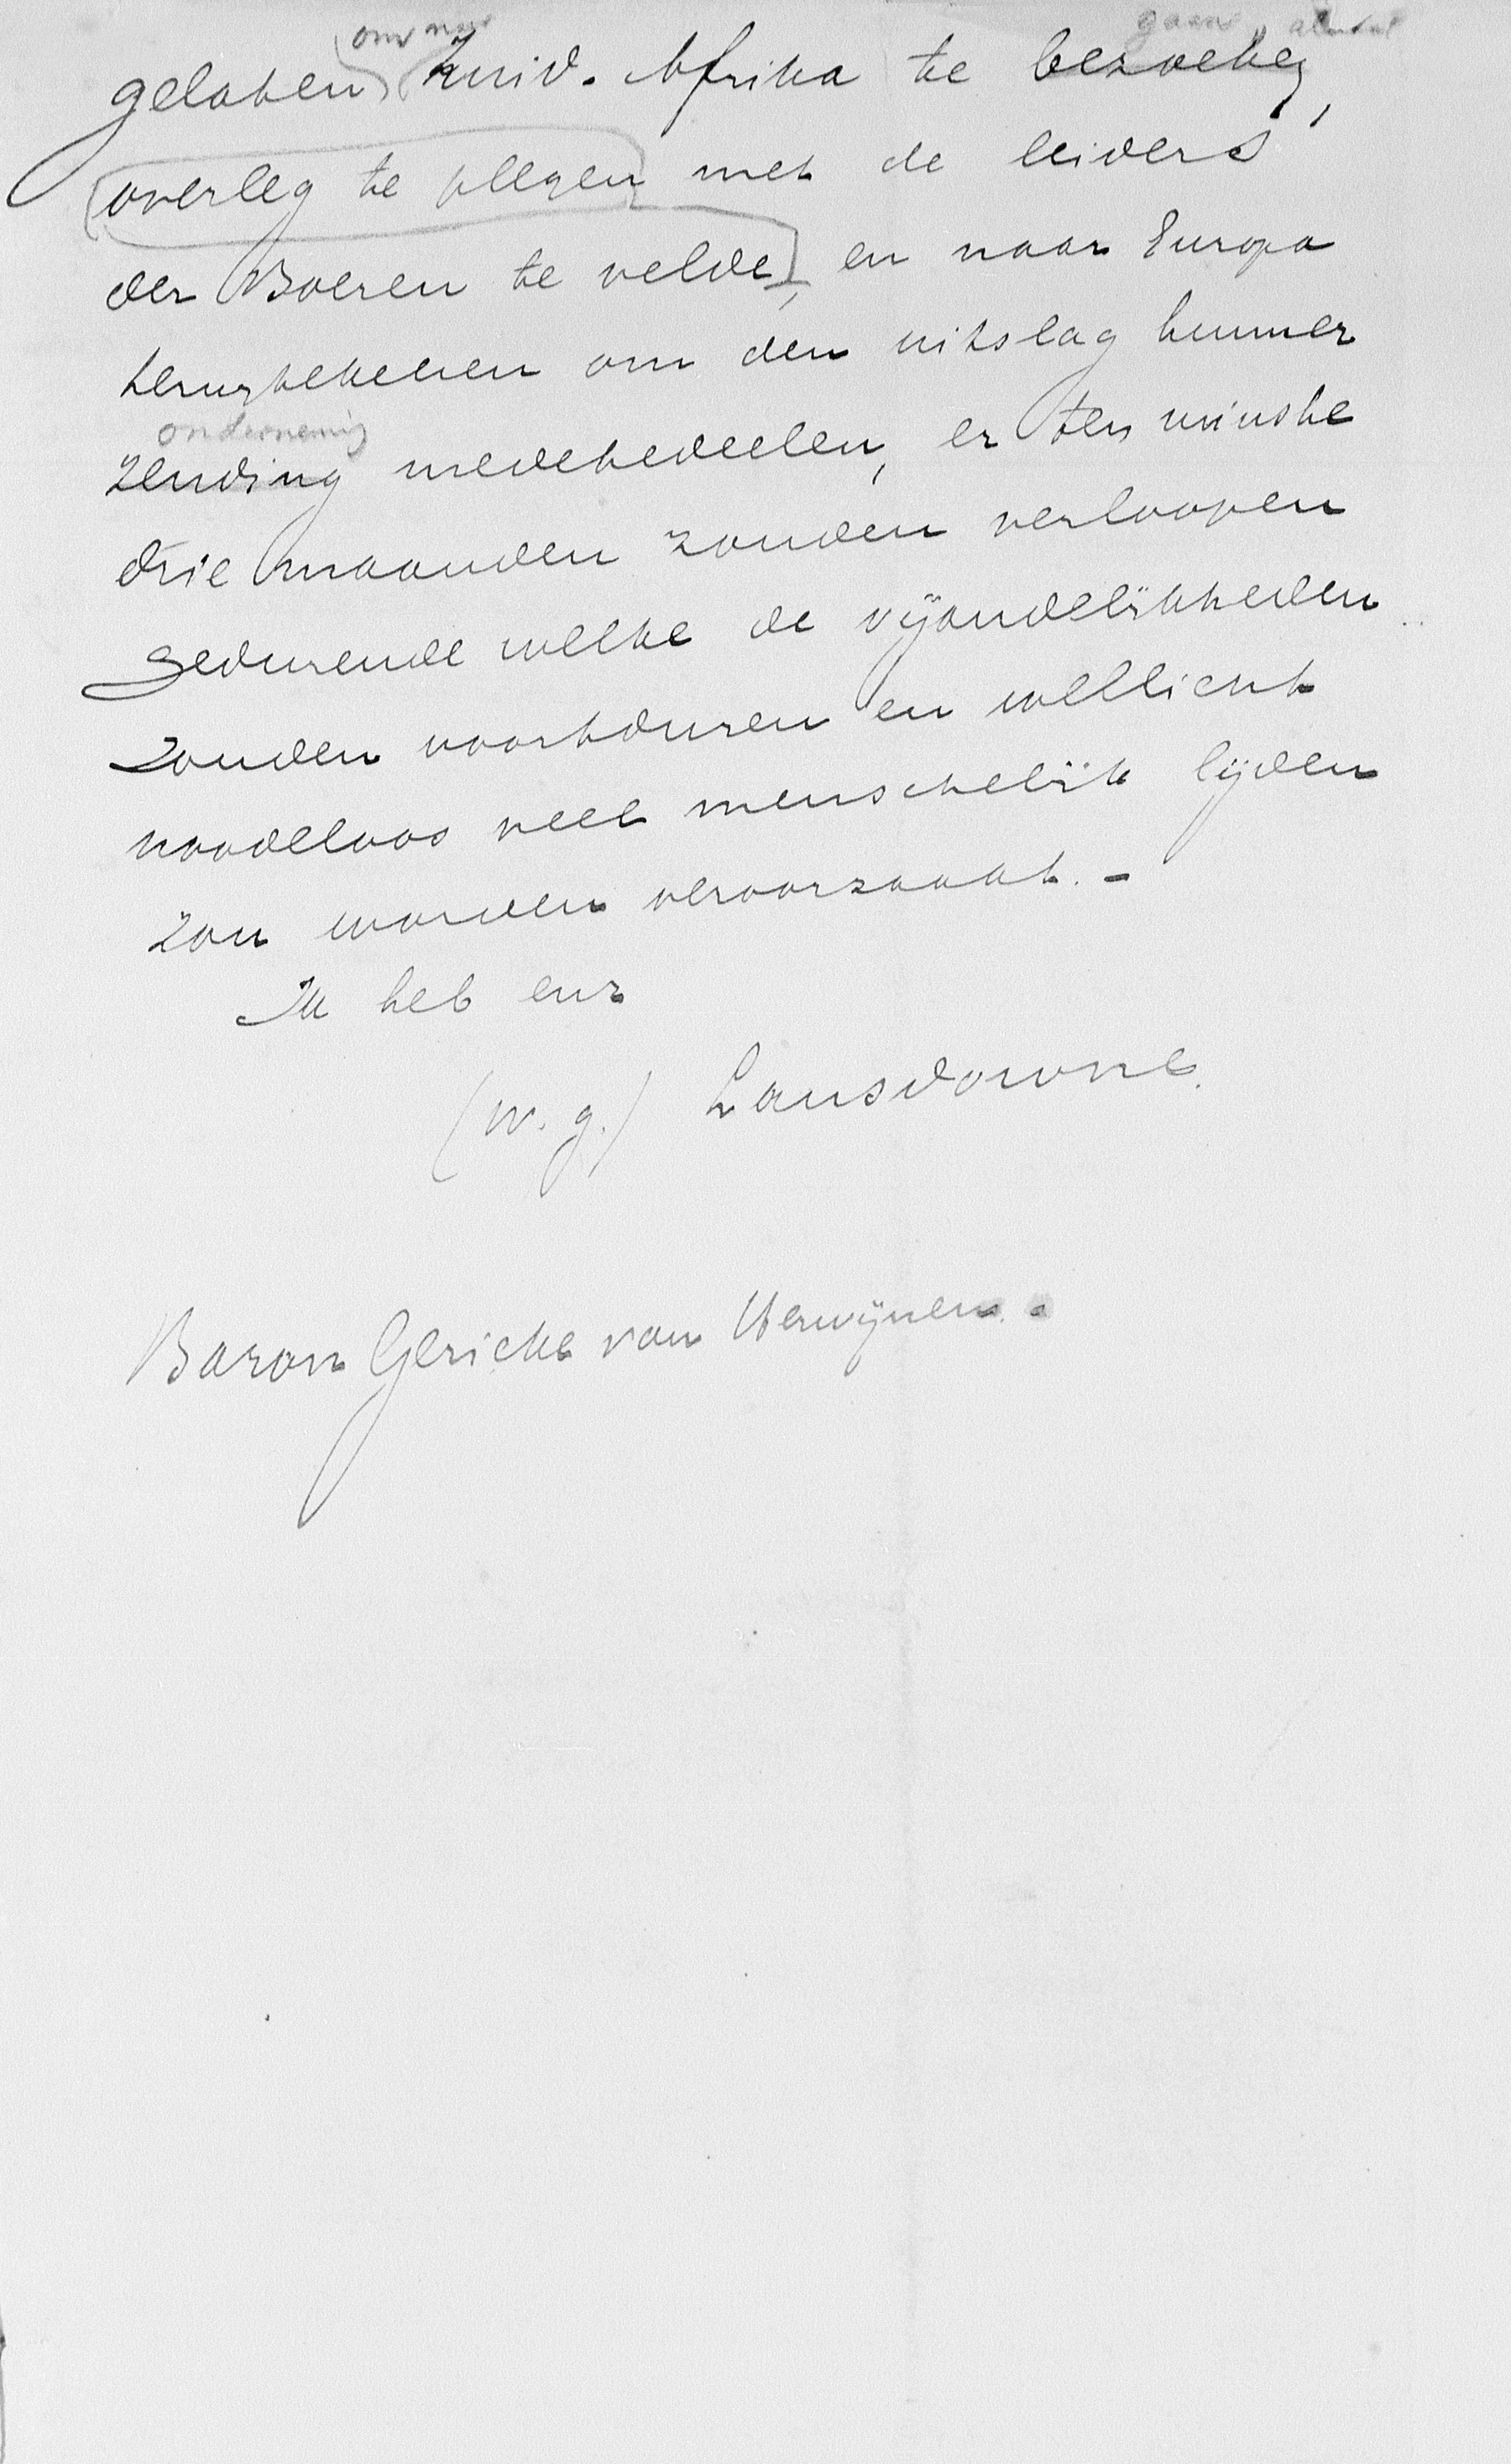 om naar gaan, aldaar
gelaten, Zuid-Afrika te bezoeken,
overleg te plegen met de leiders
der Boeren te velde, en naar Europa
terugtekeeren om den uitslag hunner
onderneming
zending medetedeelen, er ten minste
drie maanden zouden verloopen
gedurende welke de vijandelijkheden
zouden voortduren en wellicht
noodeloos veel menschelijk lijden
zou worden veroorzaakt. -
Ik heb enz
(w.g.) Lansdowne.
Baron Gericke van Herwijnen.